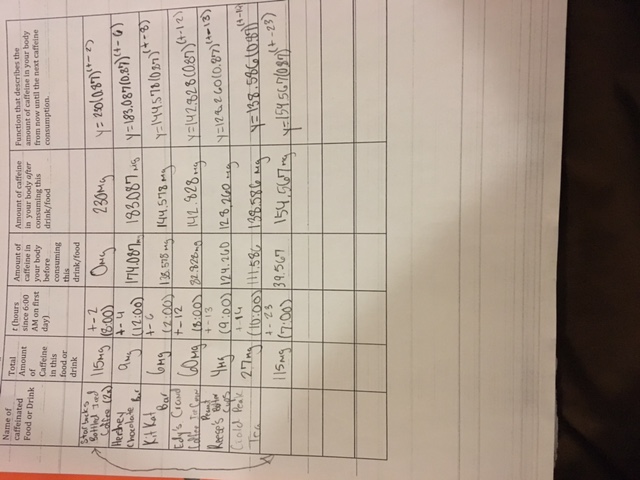 Name of
caffeinated
Food or Drink
Total
Amount
of
Caffeine
in this
food or
drink
t (hours
since 6:00
AM on first
day)
Amount of
caffeine in
your body
before
consuming
this
drink/food
Amount of caffeine
in your body after
consuming this
drink/food
Function that describes the
amount of caffeine in your body
from now until the next caffeine
consumption.
Starbucks
Bottled Iced
Coffee (2x)
115mg
t-2
(8:00)
0mg
230mg
y=230(0.87)^(t-2)
Hershey
Chocolate Bar
9mg
t-4
(12:00)
174.087mg
183.087mg
y=183.087(0.87)^(t-6)
Kit Kat
Bar
6mg
(2:00)
138.578mg
144.578mg
y=144.578(0.87)^(t-8)
Edy's Grand
60mg
t-12
(8:00)
82.828mg
142.828mg
y=142.828(0.87)^(t-12)
Reese's
Cups
4mg
t-13
(9:00)
124.260
128.260mg
y=128.260(0.87)^(t-13)
Gold Peak
Tea
27mg
t-14
(10:00)
111.586
138.586mg
y=138.586(0.87)
115mg
t-23
(7:00)
39.567
154.567mg
y=154.567(0.87)^(t-23)